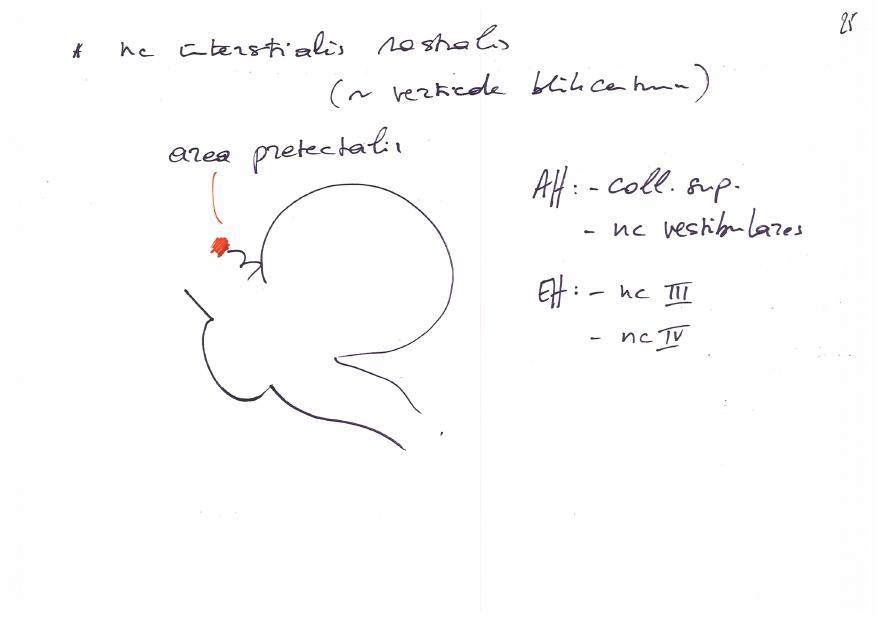 25
* nc interstialis rostralis
(~ verticale blikcentrum)
area pretectalis
Aff: - coll. sup.
- nc vestibulares
Eff: - nc III
- nc IV